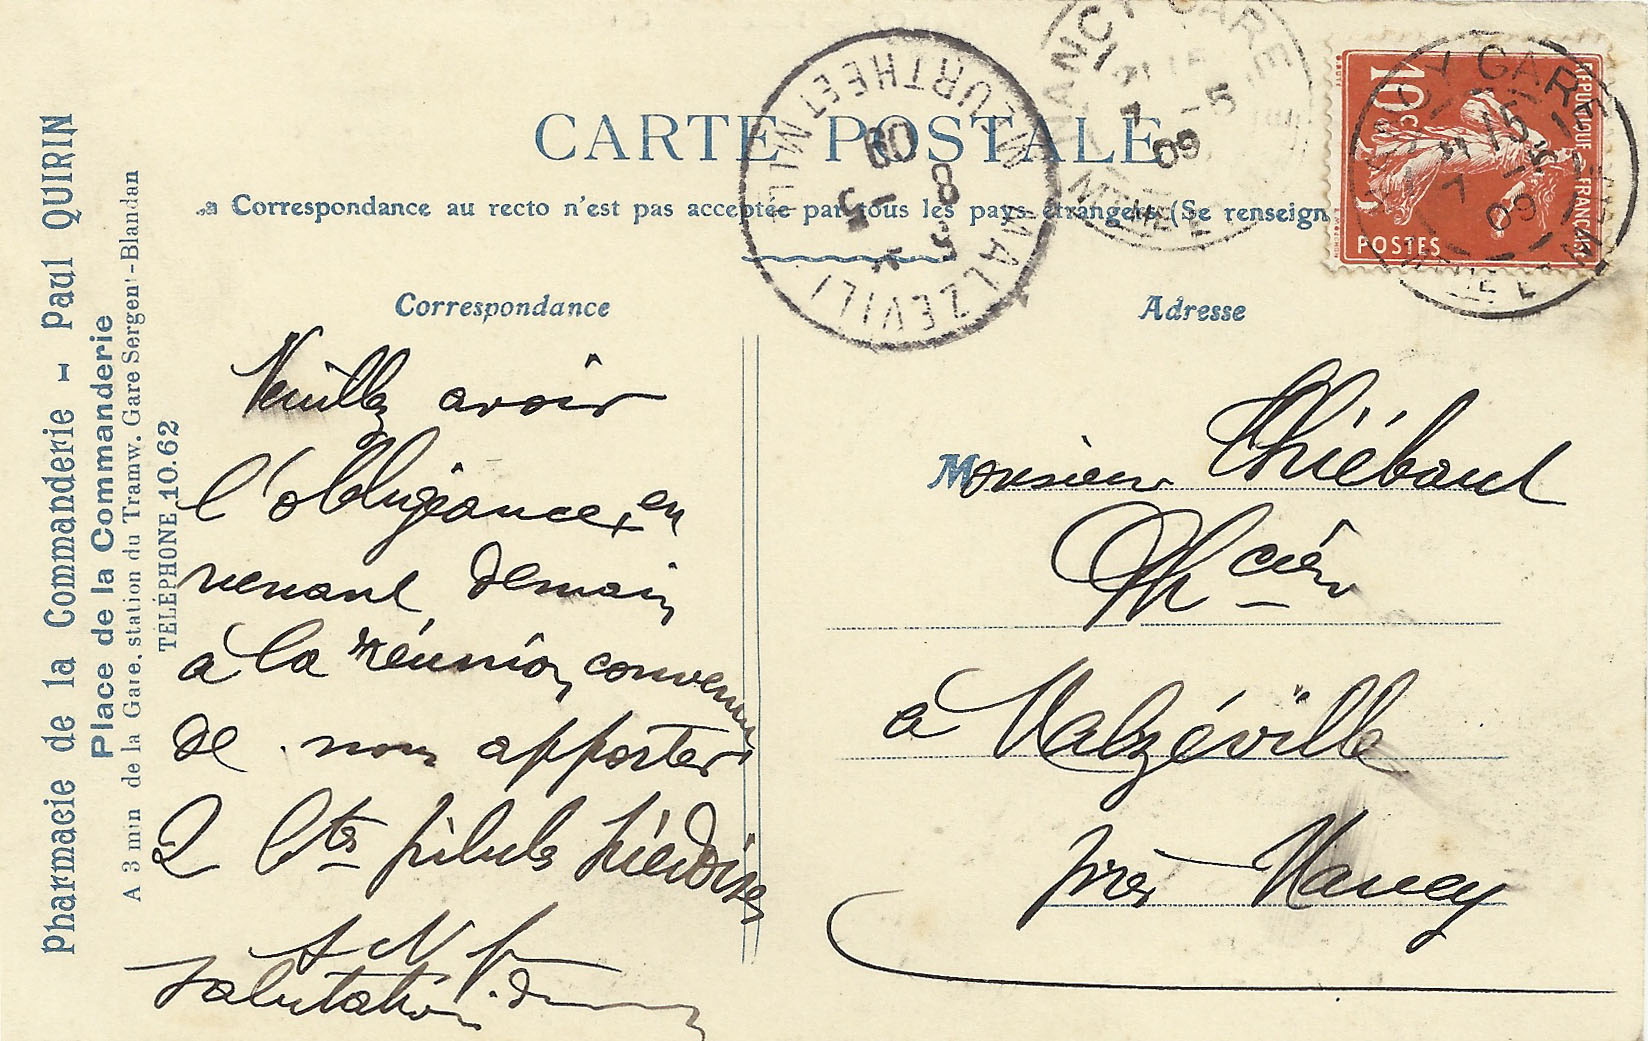 CARTE POSTALE
Correspondance au recto n'est pas acceptée par tous les pays étrangers (Se renseign
Correspondance
Adresse
Pharmacie de la Commanderie - Paul QUIRIN
Place de la Commanderie
A 3 min de la Gare, station du Tramw. Gare Sergent-Blandan
TÉLÉPHONE 10.62
NANCY GARE
7 -5
09
MALZEVILLE
MEURTHE ET MLLE
8 -5
09
NANCY GARE
7 -5
09
REPUBLIQUE FRANÇAISE
10c
POSTES
Veuillez avoir
l'obligeance, en
venant demain
à la réunion convenue
de nous apporter
2 btes pilules
salutations
Monsieur Thiébaut
Phcien
à Malzéville
près Nancy